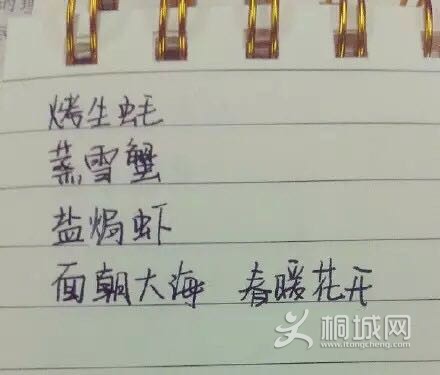 烤生蚝
蒸雪蟹
盐焗虾
面朝大海 春暖花开
桐城网
www.itongcheng.com